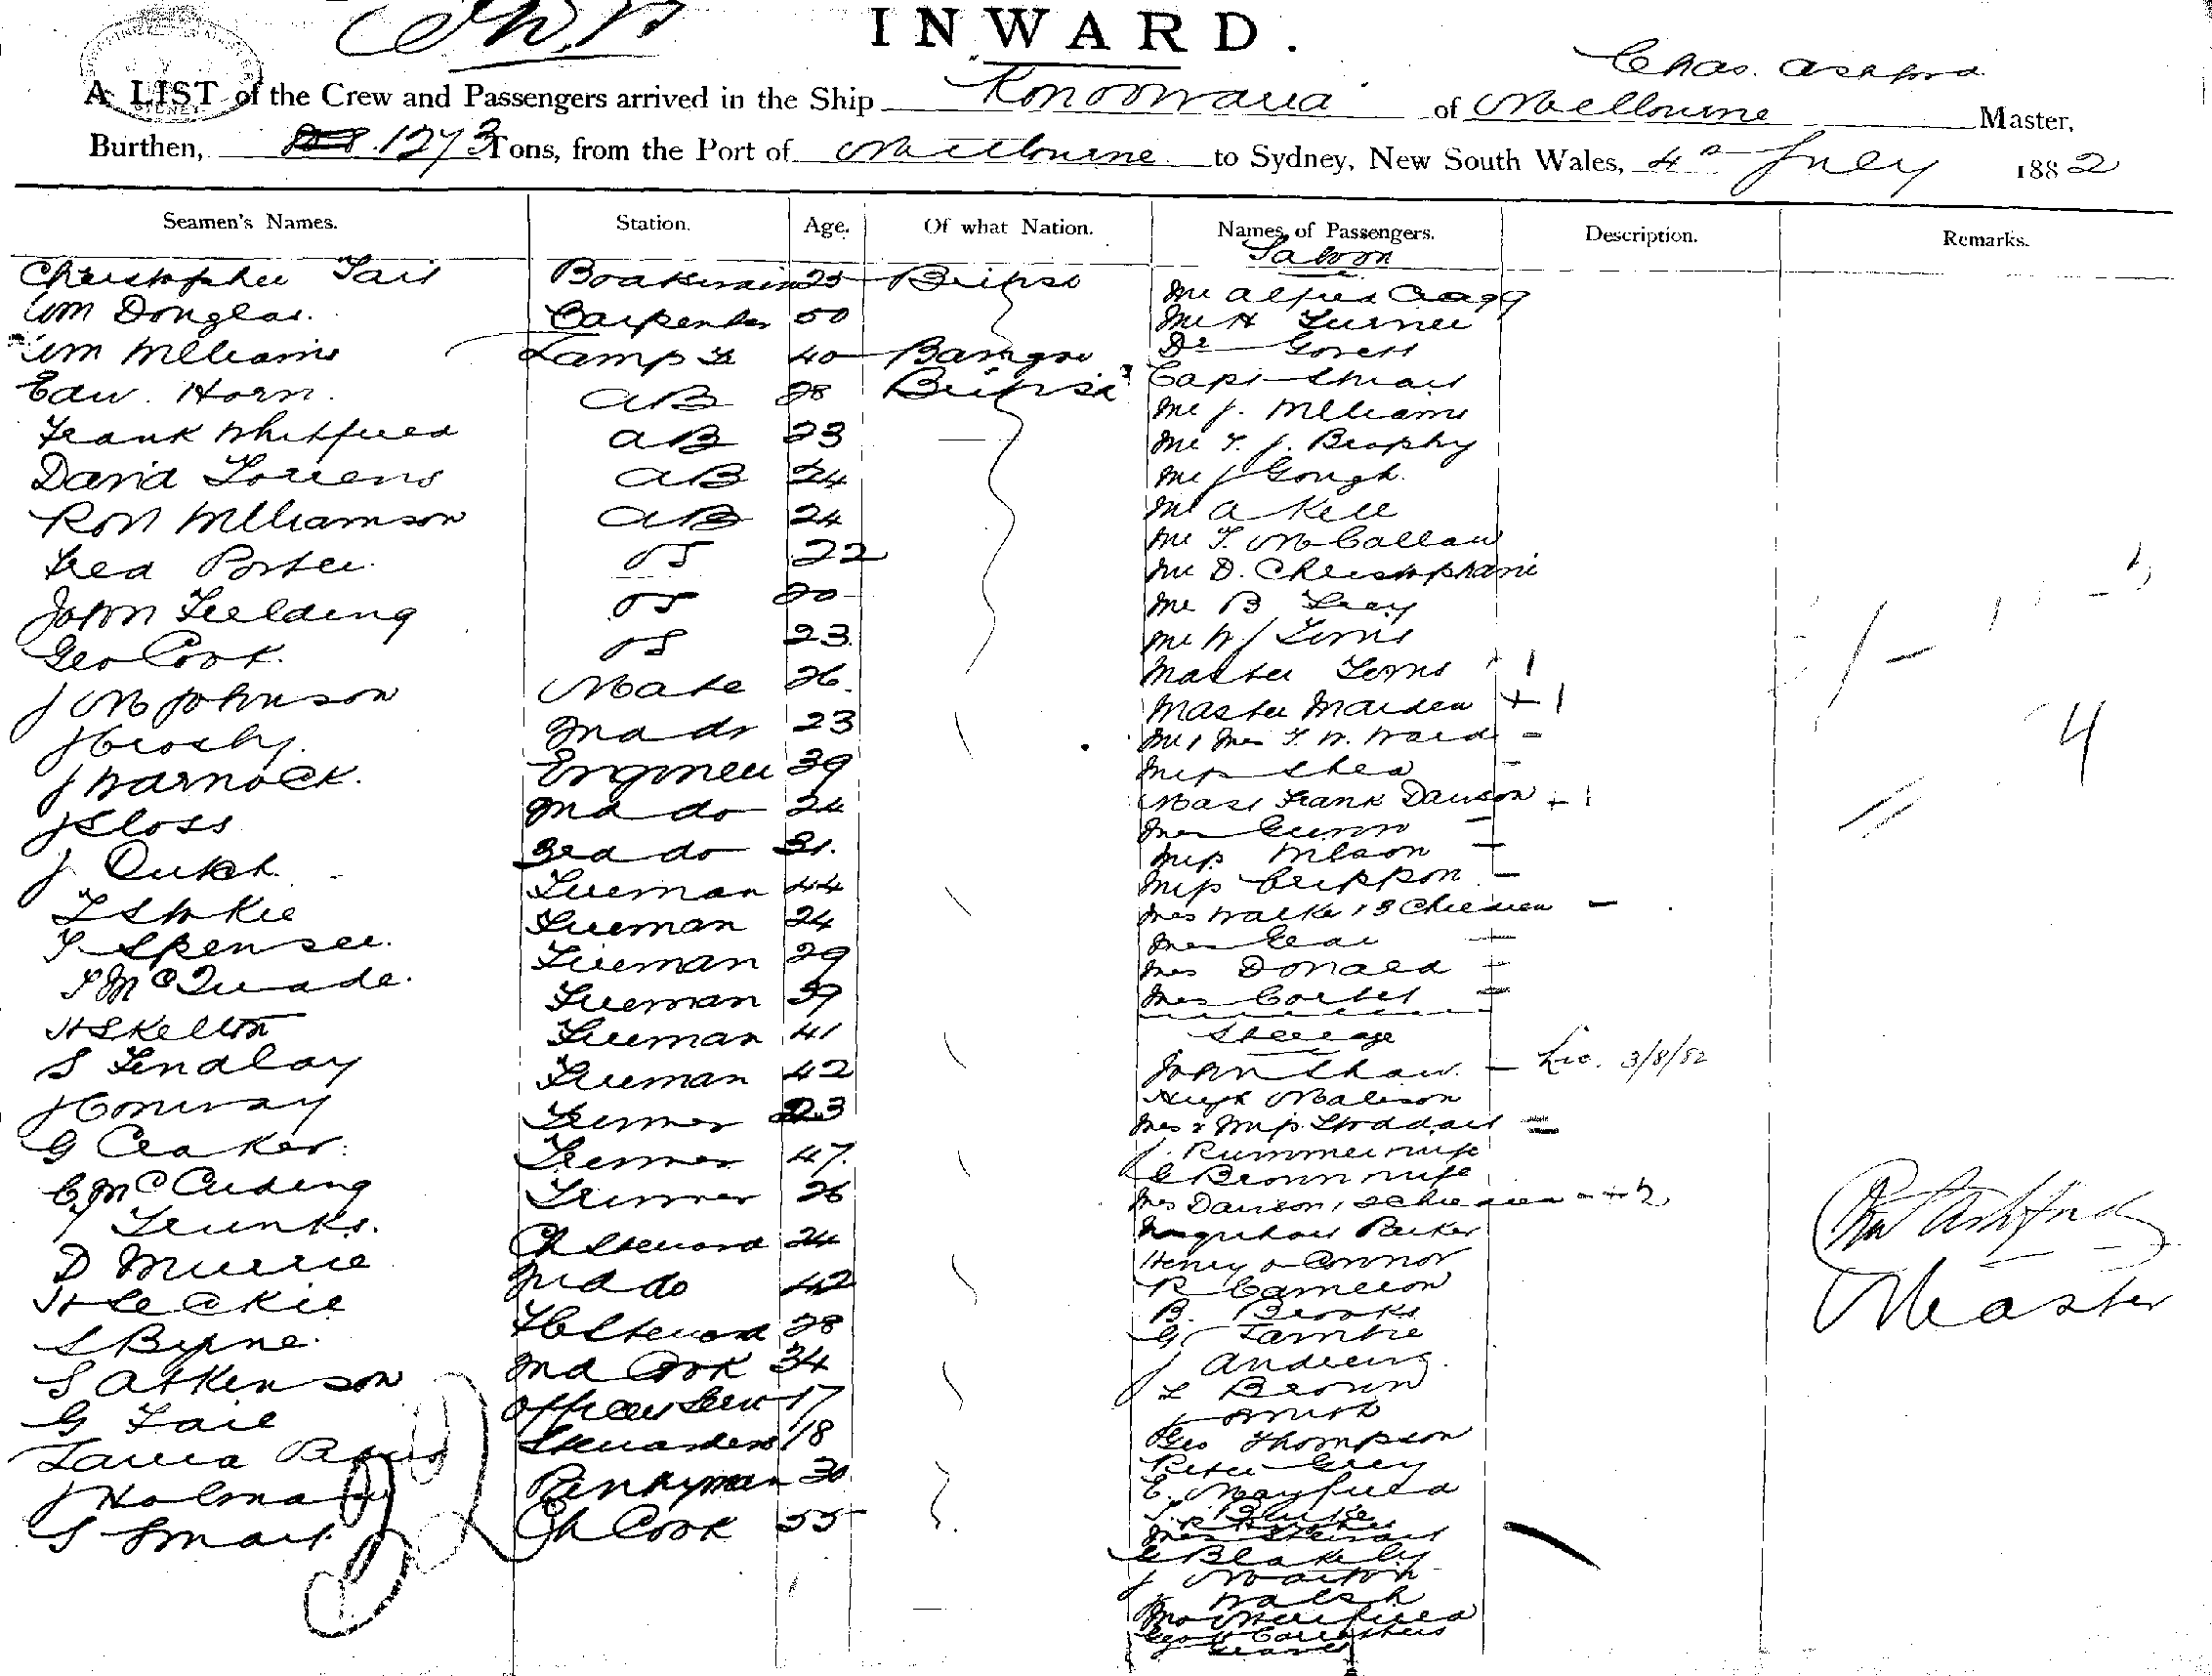 INWARD.
Chas. Ashford
A LIST of the Crew and Passengers arrived in the Ship Konoowarra of Melbourne Master,
Burthen, 1273 Tons, from the Port of Melbourne to Sydney, New South Wales, 4th July 1882
Seamen's Names. Station. Age. Of what Nation. Names of Passengers. Description. Remarks.
Saloon
Christopher Tait Boatswain 25 British
Wm Douglas. Carpenter 50
Wm Williams Lamp Tr 40
Edw. Horn. AB 28 British
Frank Whitfield AB 23
David Torrens AB 24
Robt Williamson AB 24
Fred Porter. OS 22
John Fielding OS 20
Geo Cook. OS 23
J McJohnson Mate 26.
J Crosby. 2nd do 23
J Warnock. Engineer 39
J Closs 2nd do 24
J Dutch. 3rd do 31.
Fireman 44
T Spenser. Fireman 24
McQuade. Fireman 29
H Skelton Fireman 39
S Findlay Fireman 41
J Conway Fireman 42
G Croker. Trimmer 23
Trimmer 47.
Trunks. Trimmer 26
D Murrie Ch Steward 24
H Leckie 2nd do 42
S Byrne. F C Steward 28
S Atkinson 2nd Cook 34
G Tait Officers Serv 17
Laura Stewardess 18
J Holman Pantryman 30
S Smart Ch Cook 55
Mr Alfred Cragg
Mr H Turner
Dr
Capt Stuart
Mr J. Williams
Mr T. J. Brophy
Mr J Gough.
Mr A Kell
Mr T. McCallum
Mr D. Christophani
Mr B Frey
Mr W J Ferris
Master Ferris 1
Master Marden + 1
Mr & Mrs T. W. Ward -
Miss Shea -
Mast Frank Dawson + 1
Mrs Gunn -
Miss Wilson -
Miss Crippon -
Mrs Walker & 3 Children -
Mrs
Mrs Donald
Mrs Corbet
Steerage
John Shaw. - Lic. 3/8/82
Hugh Malison
Mrs & Miss Stoddart
J. Rummer wife
G Brown wife
Mrs Dawson & 2 children - + 2
Parker
Henry O Connor
R Cameron
B. Brooks
G Lambie
J Andrews.
L Brown
Smith
Geo Thompson
Peter Grey
E. Mayfield
Mrs Stewart
G Blakely
J Marton
Walsh
Merrifield
Geo Carruthers
4
Chas Ashford
Master